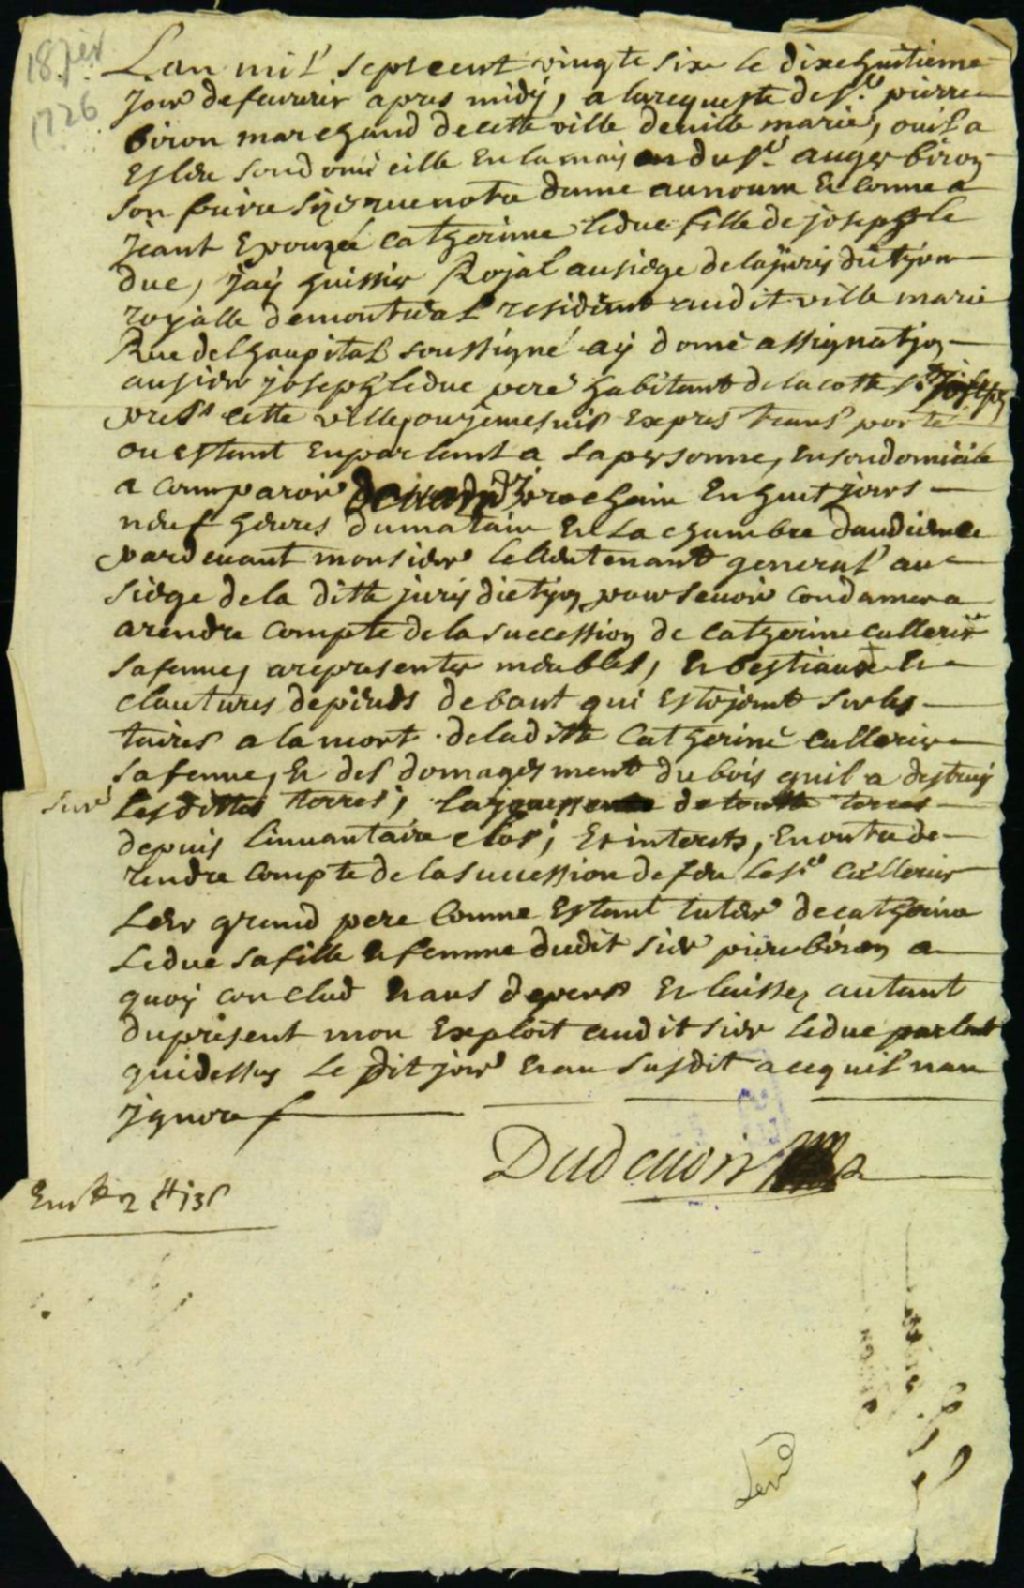 18 fév
1726
Lan mil septcent vingte sixe le dixe huitieme
Jour defeuvrier apres midy, a larequeste de sr. pierre
biron marchand decette ville deville marie, ouil a
Esleu sondomicille En lamaison du sr. auger biron
son frere size rue notre dame aunoum Et comme a
jeant Epouzée catherine leduc fille de joseph le
duc, jay huissier Rojal ausiege delajurisdictyon
rojalle demontreal residant audit ville marie
Rue delhaupital soussigné aÿ donné assignatyon
ausieur joseph leduc pere habitant de lacotte st. joseph
pres cette ville, ou jemesuis Expres transporté
ou estant Enparlant a sapersonne, Ensondomicile
a comparoir prochain En huit jours
neuf heures dumatain En La chambre daudience
pardevant monsieur le lieutenant general au
siege dela ditte jurisdictyon poursevoir condamer a
arendre compte dela succession de catherine cullerie
safemme, arepresenter meubles, Et bestiaux Et
clautures depieuds debout qui Estojent surles
taires a la mort deladitte Catherine cullerier
safemme, Et des domagement du bois quil a destruy
sur lesdittes terres, detoutte terres
depuis linvantaire clos, Et interets, Enoutre de
rendre compte delasuccession defeu lesr. cullerier
Leur grand pere comme Estant tuteur decatherine
Leduc safille Et femme dudit sieur pierre biron a
quoy conclud Et aus depens Et laisser autant
dupresent mon Exploit audit sieur leduc parlant
quidessus le dit jour Et an susdit acequil nan
jgnore
Dudevoir
2 ₶ 13s